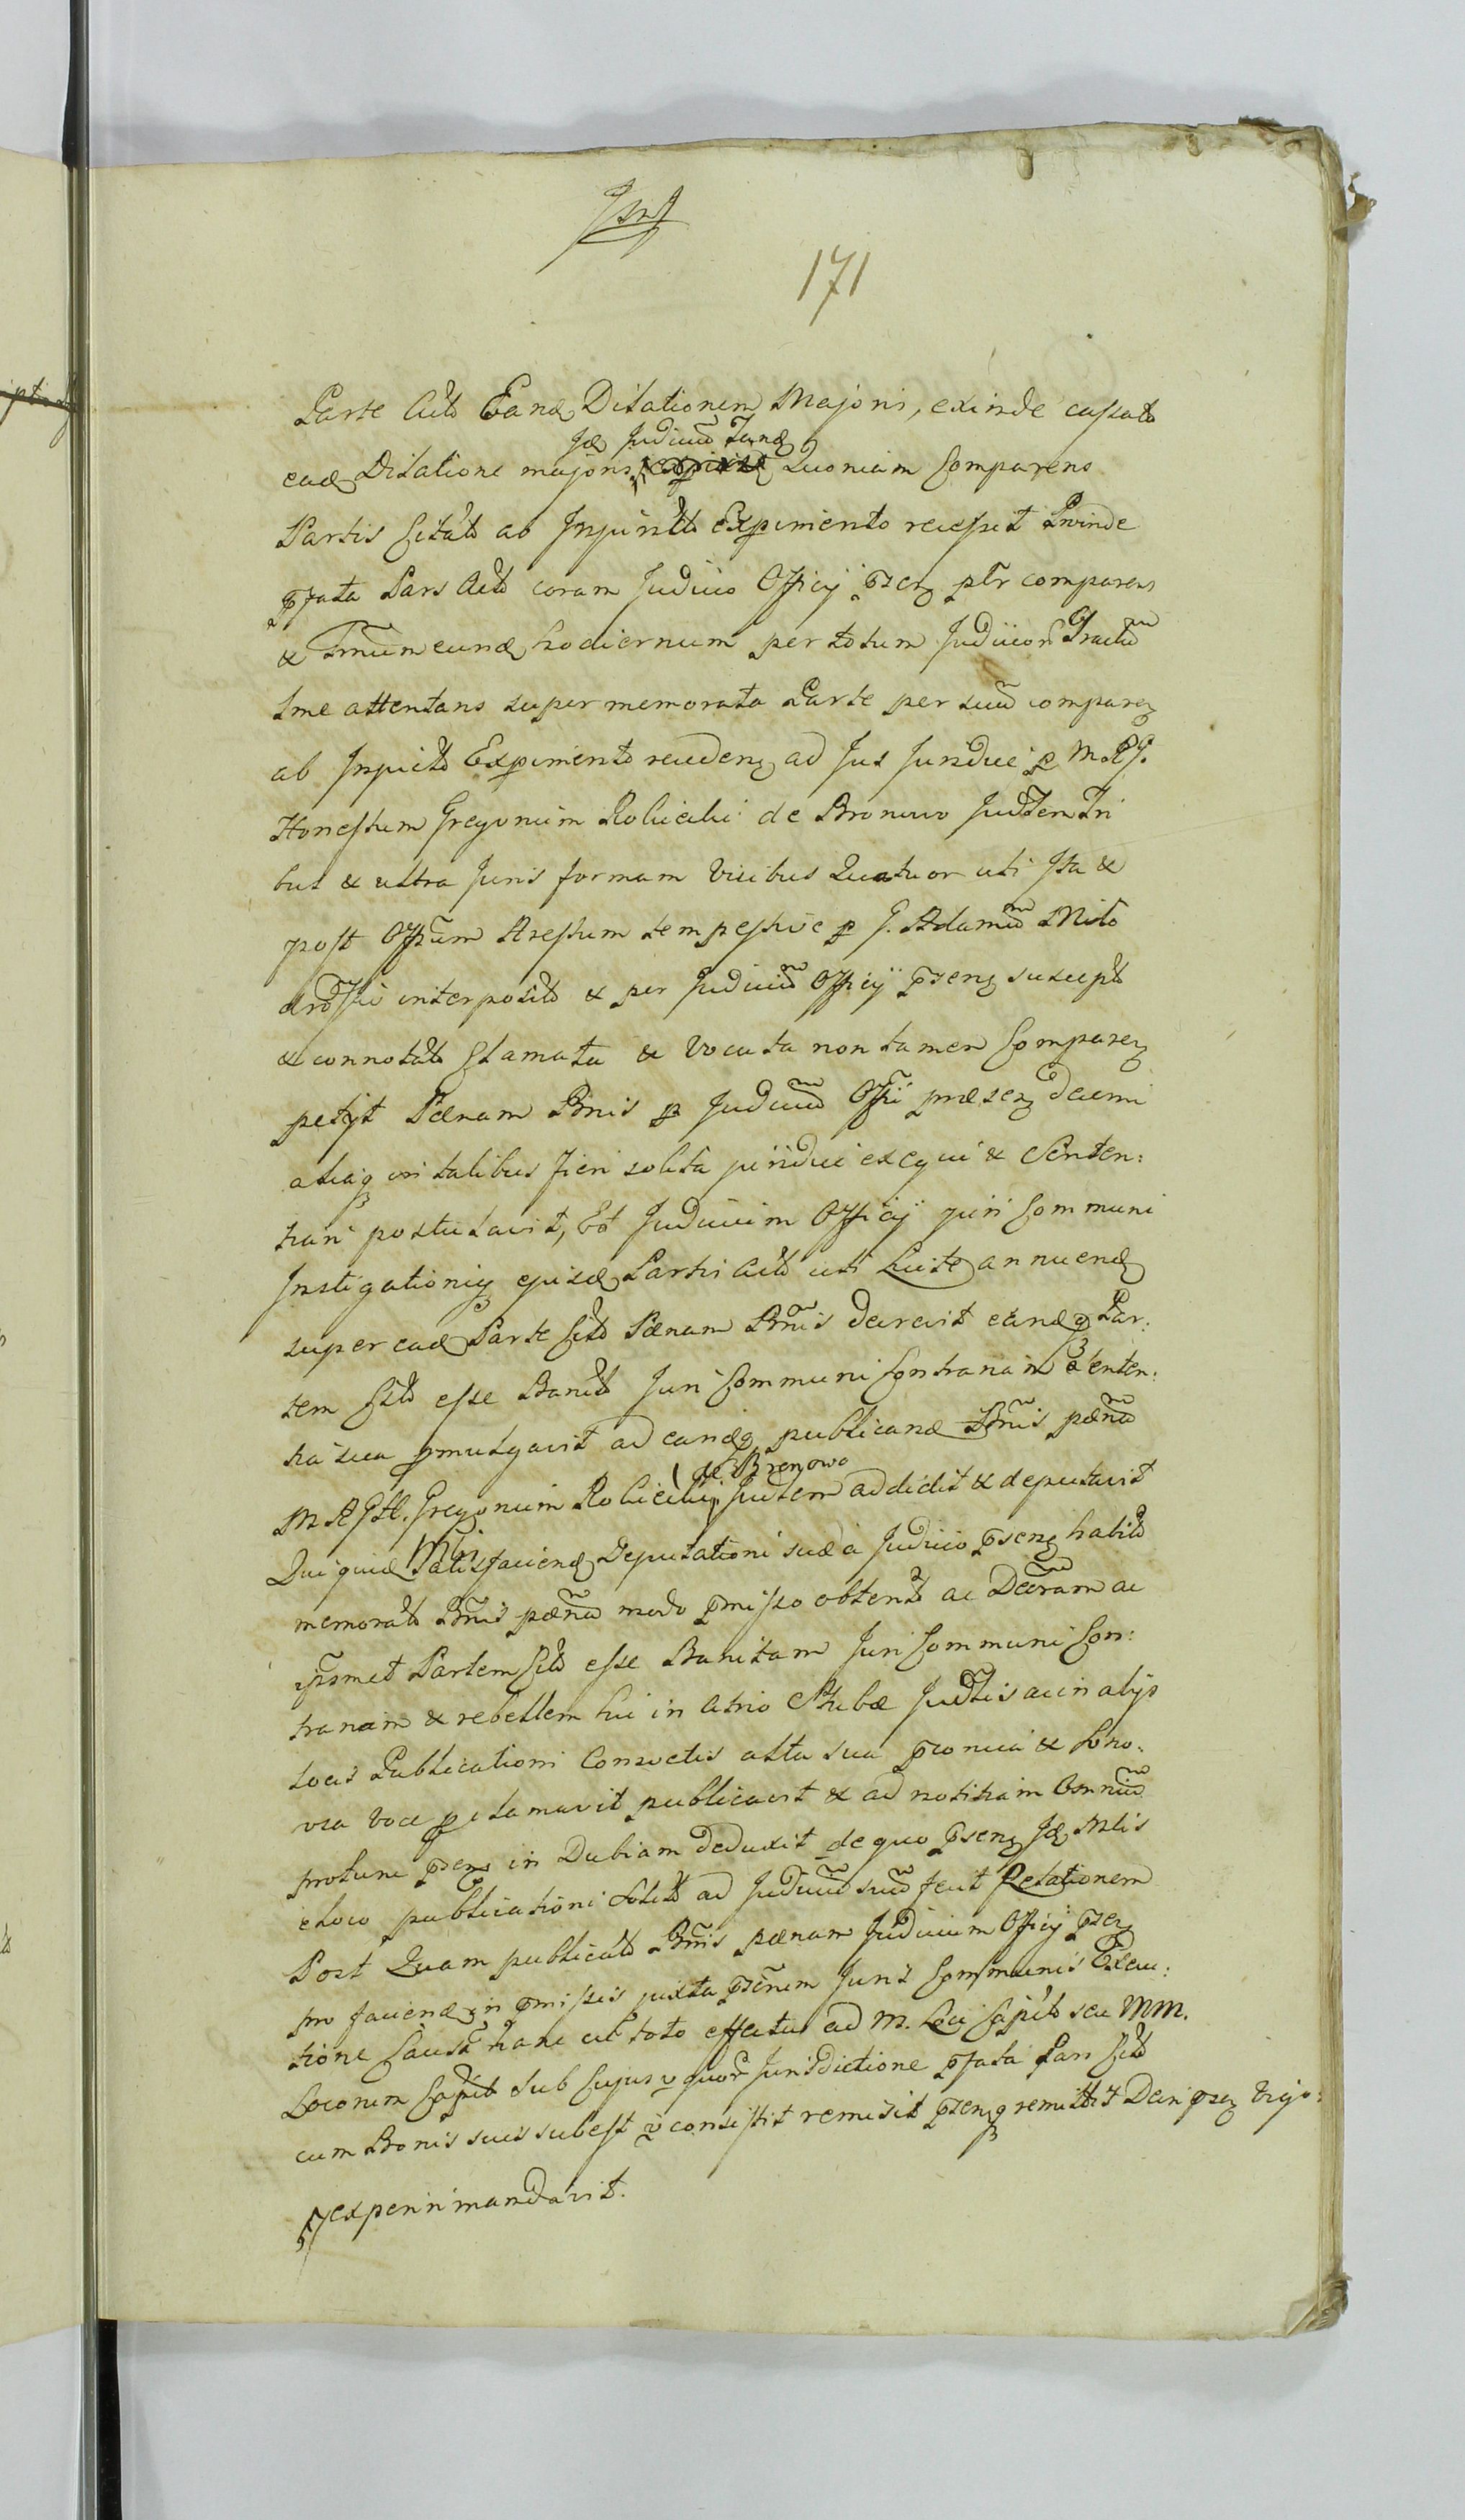 171
Parte Actt Eand Dilationem Majoris, exinde cassatt
Jd Judiciu Tand
ead Dilatione majoris Quoniam Comparens
Partis Citatt ab Injunctt Experimento recessit Proinde
pfata Pars Actt coram Judicio Officij psen pltr comparens
& Tmum eund hodiernum per totum Judicior Tractu
tme attentans super memorata Parte per suu comparen
ab Injuctt Experimento receden ad Jus Juridice p M. R. J.
Honestum Gregorium Robiecki de Bronowo Judtem Tri
bus & ultra Juris formam Vicibus Quatuor uti Jta &
post Offium Arestum tempestive p G. Adamu
interpositt & per Judiciu Officij psen suscept
& connotatt Clamata & Vocata non tamen Comparen
petijt Pænam Bnis p Judiciu Offi præsen decerni
aliaq in talibus fieri solita juridice exequi & Senten:
tiari postulavit, Et Judicium Officij juri Communi
Instigationiq ejusd Partis Actt uti Licite annuend
super ead Parte Citt Pænam Bnis decrevit eandq Par:
tem Citt esse Banitt Juri Communi Contrariam Senten:
tia sua pmulgavit ad eandq publicand Bnis pæna
de Bronowo
M. R. Gregorium Robiecki Judtem addidit & deputavit
Qui quid Mtr Satisfaciend Deputationi suæ a Judicio psen habitt
memoratt Bnis pæna modo pmisso obtent ac Decretam ac
ipsmet Partem Citt esse Banitam Juri Communi Con:
trariam & rebellem hic in Atrio Stubæ Judtis ac in alijs
locis Publicationi Consvetis alta sua pconica & Sono:
ra voce pclamavit publicavit & ad notitiam Omniu
protunc psen in Dubiam deduxit de quo psen Jd Mtis
e loco publicationi Solitt ad Judiciu suu fecit Relationem
Post Quam publicatt Bnis pænam Judicium Officij psen
pro faciend in pmissis juxta Juris Communis Execu:
tione Causa hanc cu toto effectu ad M. Loci Capitt seu MM.
Locorum Capitt sub Cujus v quor Jurisdictione pfata Pars Citt
cum Bonis suis subest v consistit remisit psenq remittit Decri psen Vigo:
experirimandavit.